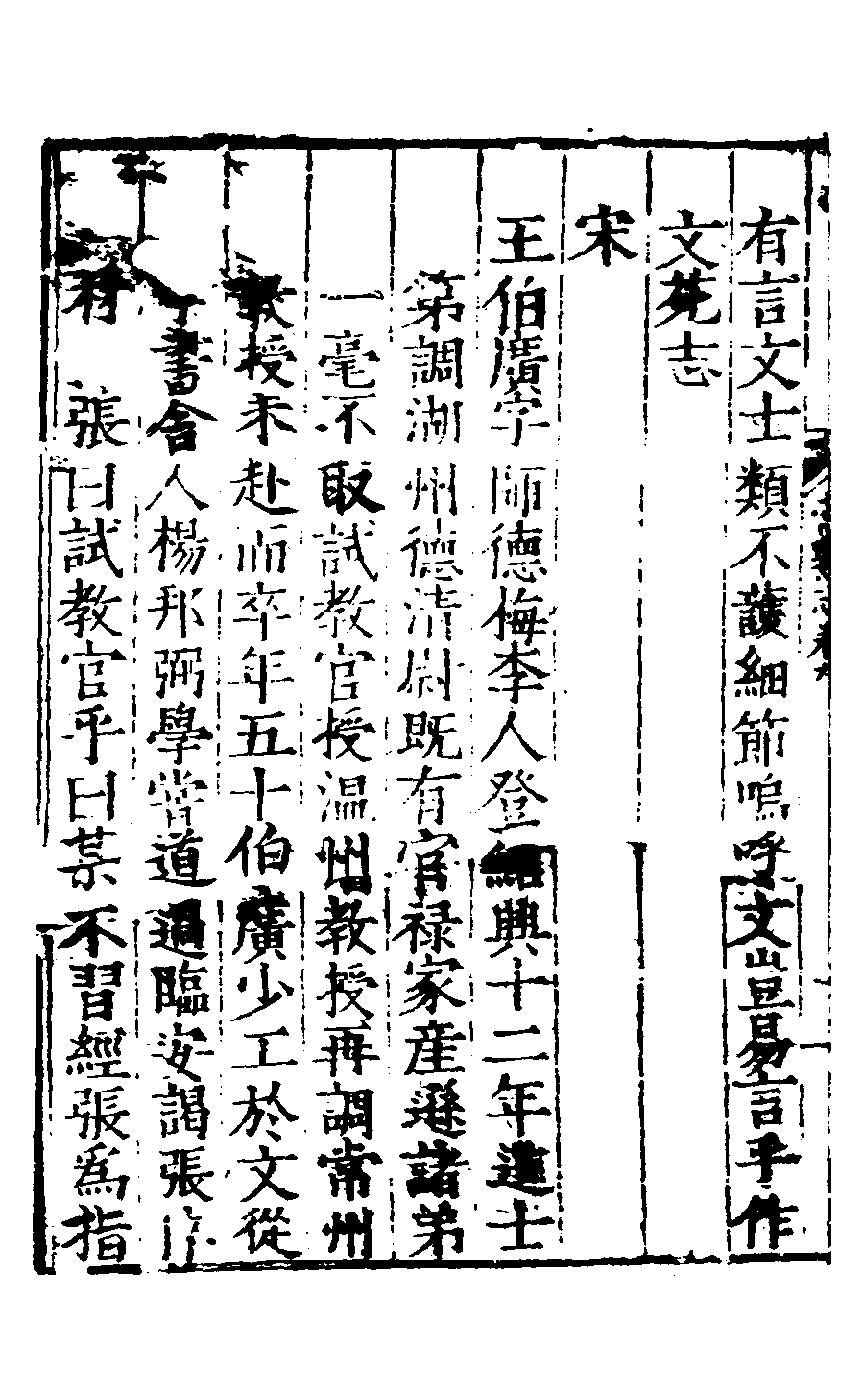 有言文士類不護細節嗚呼文豈易言乎作
文苑志
宋
王伯廣字師德梅李人登紹興十二年進士
第調湖州德清尉既有官祿家産遜諸弟
一毫不取試教官授温州教授再調常州
教授未赴而卒年五十伯廣少工於文從
書舍人楊邦弼學嘗道過臨安謁張
張曰試教官乎曰某不習經張爲指